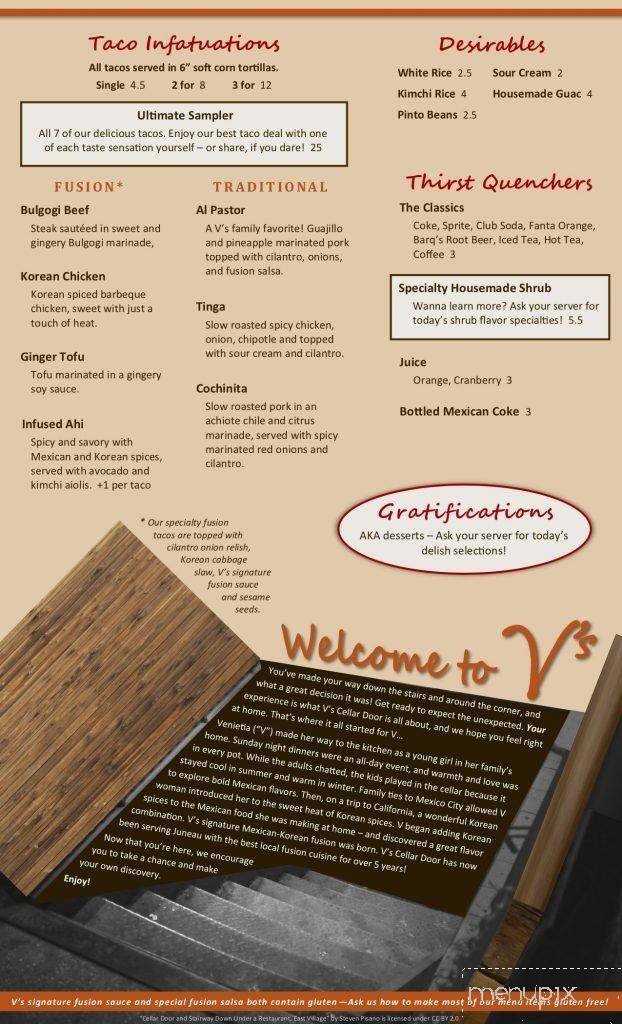 Taco Infatuations
All tacos served in 6” soft corn tortillas.
Single 4.5 2 for 8 3 for 12
Ultimate Sampler
All 7 of our delicious tacos. Enjoy our best taco deal with one
of each taste sensation yourself – or share, if you dare! 25
FUSION*
Bulgogi Beef
Steak sautéed in sweet and
gingery Bulgogi marinade,
Korean Chicken
Korean spiced barbeque
chicken, sweet with just a
touch of heat.
Ginger Tofu
Tofu marinated in a gingery
soy sauce.
Infused Ahi
Spicy and savory with
Mexican and Korean spices,
served with avocado and
kimchi aiolis. +1 per taco
TRADITIONAL
Al Pastor
A V’s family favorite! Guajillo
and pineapple marinated pork
topped with cilantro, onions,
and fusion salsa.
Tinga
Slow roasted spicy chicken,
onion, chipotle and topped
with sour cream and cilantro.
Cochinita
Slow roasted pork in an
achiote chile and citrus
marinade, served with spicy
marinated red onions and
cilantro.
* Our specialty fusion
tacos are topped with
cilantro onion relish,
Korean cabbage
slaw, V’s signature
fusion sauce
and sesame
seeds.
Desirables
White Rice 2.5 Sour Cream 2
Kimchi Rice 4 Housemade Guac 4
Pinto Beans 2.5
Thirst Quenchers
The Classics
Coke, Sprite, Club Soda, Fanta Orange,
Barq’s Root Beer, Iced Tea, Hot Tea,
Coffee 3
Specialty Housemade Shrub
Wanna learn more? Ask your server for
today’s shrub flavor specialties! 5.5
Juice
Orange, Cranberry 3
Bottled Mexican Coke 3
Gratifications
AKA desserts – Ask your server for today’s
delish selections!
Welcome to V’s
You’ve made your way down the stairs and around the corner, and
what a great decision it was! Get ready to expect the unexpected. Your
experience is what V’s Cellar Door is all about, and we hope you feel right
at home. That’s where it all started for V…
Venietia (“V”) made her way to the kitchen as a young girl in her family’s
home. Sunday night dinners were an all-day event, and warmth and love was
in every pot. While the adults chatted, the kids played in the cellar because it
stayed cool in summer and warm in winter. Family ties to Mexico City allowed V
to explore bold Mexican flavors. Then, on a trip to California, a wonderful Korean
woman introduced her to the sweet heat of Korean spices. V began adding Korean
spices to the Mexican food she was making at home – and discovered a great flavor
combination. V’s signature Mexican-Korean fusion was born. V’s Cellar Door has now
been serving Juneau with the best local fusion cuisine for over 5 years!
Now that you’re here, we encourage
you to take a chance and make
your own discovery.
Enjoy!
menupix
V’s signature fusion sauce and special fusion salsa both contain gluten—Ask us how to make most of our menu items gluten free!
"Cellar Door and Stairway Down Under a Restaurant, East Village" by Steven Pisano is licensed under CC BY 2.0